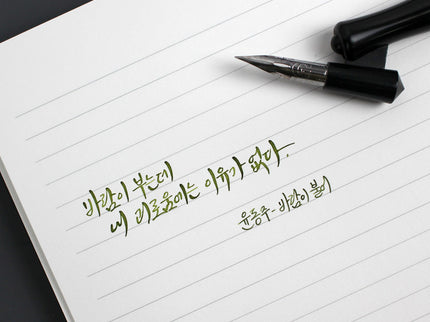 바람이 부는데
내 괴로움에는 이유가 없다.
윤동주 - 바람이 불어